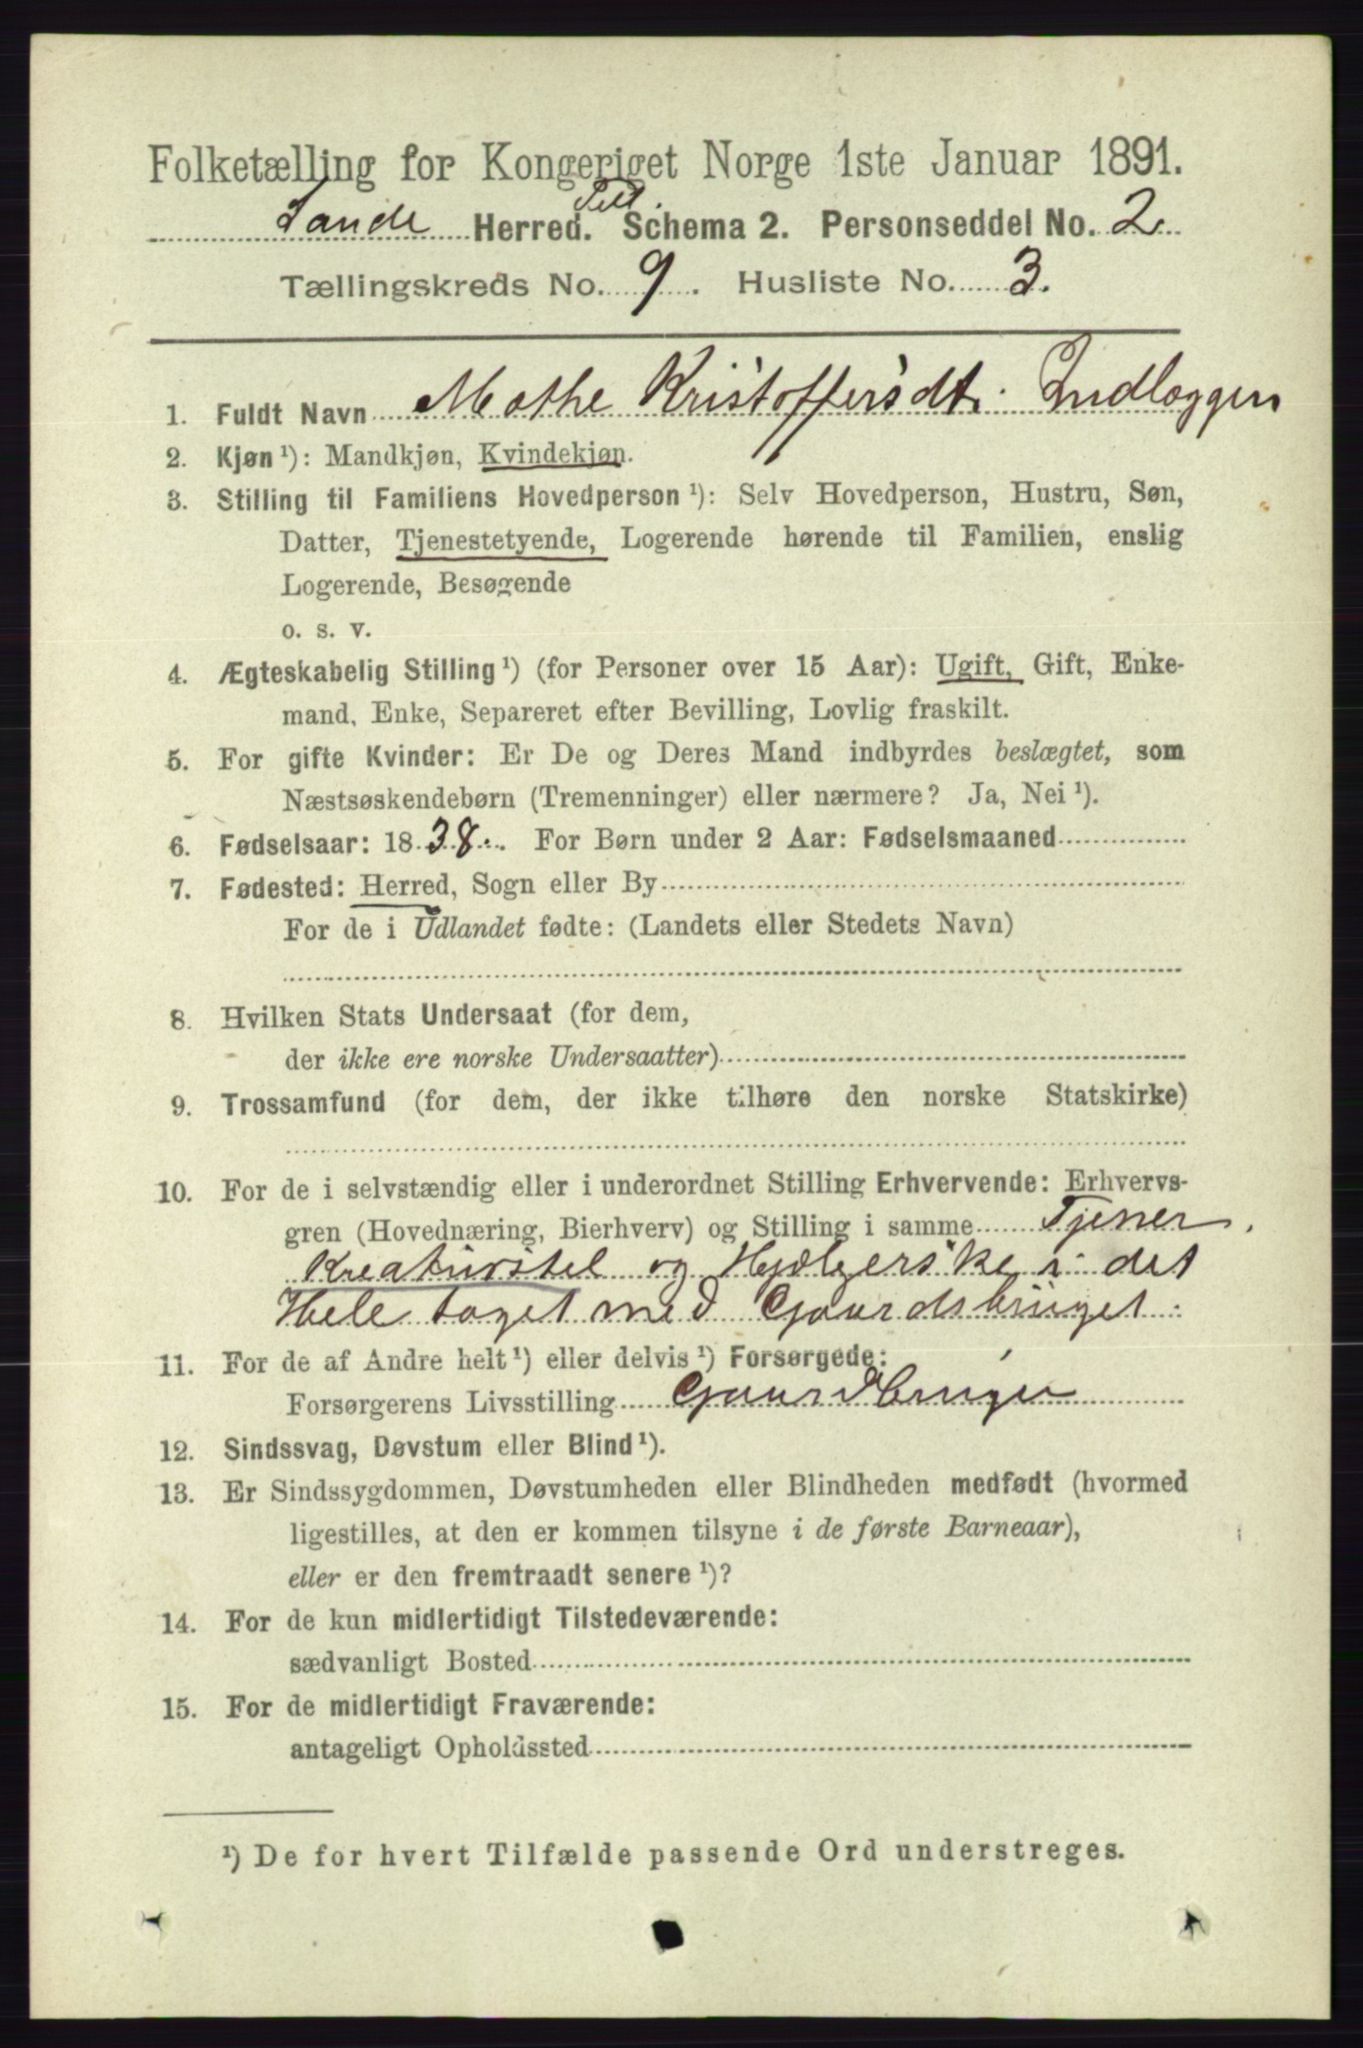 Folketælling for Kongeriget Norge 1ste Januar 1891.
Sande Herred. Till. Schema 2. Personseddel No. 2.
Tællingskreds No. 9. Husliste No. 3.
1. Fuldt Navn Mathe Kristoffersdt. Indlæggen
2. Kjøn ¹): Mandkjøn, Kvindekjøn.
3. Stilling til Familiens Hovedperson ¹): Selv Hovedperson, Hustru, Søn,
Datter, Tjenestetyende, Logerende hørende til Familien, enslig
Logerende, Besøgende
o. s. v.
4. Ægteskabelig Stilling ¹) (for Personer over 15 Aar): Ugift, Gift, Enke-
mand, Enke, Separeret efter Bevilling, Lovlig fraskilt.
5. For gifte Kvinder: Er De og Deres Mand indbyrdes beslægtet, som
Næstsøskendebørn (Tremenninger) eller nærmere? Ja, Nei ¹).
6. Fødselsaar: 1838. For Børn under 2 Aar: Fødselsmaaned
7. Fødested: Herred, Sogn eller By
For de i Udlandet fødte: (Landets eller Stedets Navn)
8. Hvilken Stats Undersaat (for dem,
der ikke ere norske Undersaatter)
9. Trossamfund (for dem, der ikke tilhøre den norske Statskirke)
10. For de i selvstændig eller i underordnet Stilling Erhvervende: Erhvervs-
gren (Hovednæring, Bierhverv) og Stilling i samme Tjener.
Kreaturstel og Hjælperske i det
Hele taget med Gaardsbruget.
11. For de af Andre helt ¹) eller delvis ¹) Forsørgede:
Forsørgerens Livsstilling Gaardbruger
12. Sindssvag, Døvstum eller Blind ¹).
13. Er Sindssygdommen, Døvstumheden eller Blindheden medfødt (hvormed
ligestilles, at den er kommen tilsyne i de første Barneaar),
eller er den fremtraadt senere ¹)?
14. For de kun midlertidigt Tilstedeværende:
sædvanligt Bosted
15. For de midlertidigt Fraværende:
antageligt Opholdssted
¹) De for hvert Tilfælde passende Ord understreges.